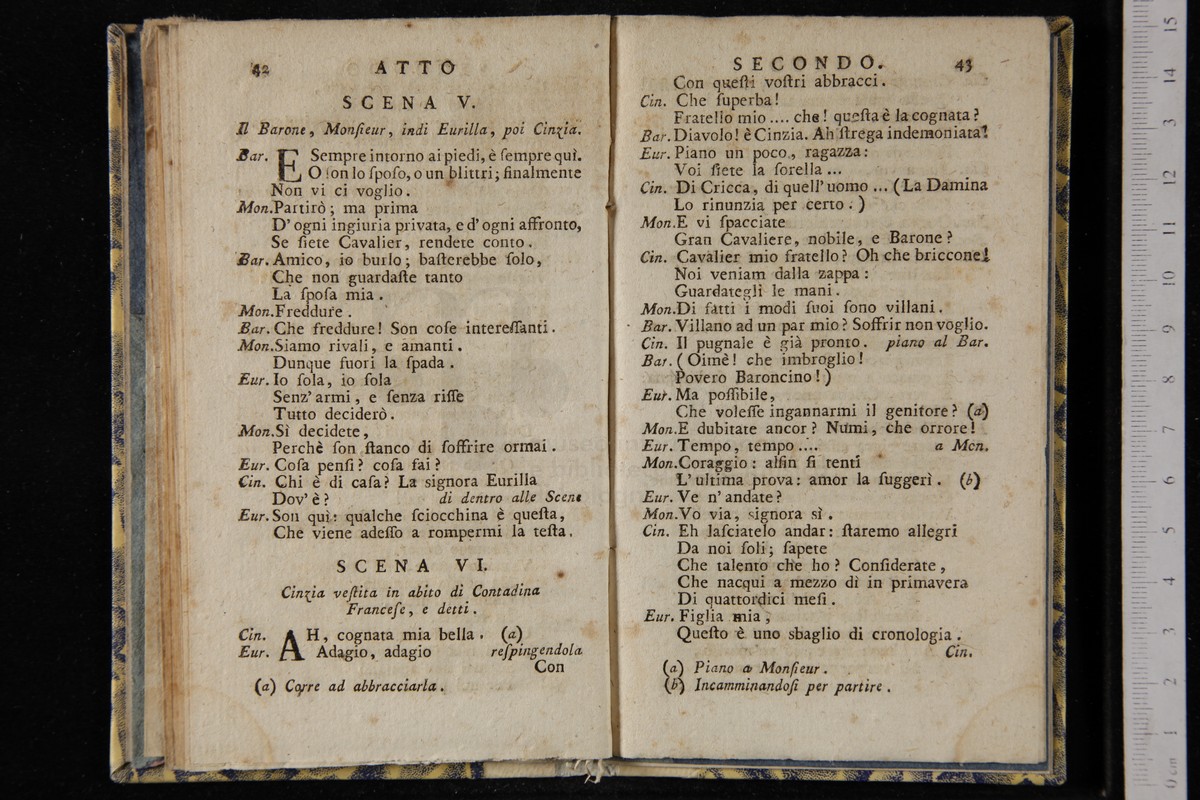 42 ATTO
SCENA V.
Il Barone, Monſieur, indi Eurilla, poi Cinzia.
Bar. E Sempre intorno ai piedi, è ſempre quì.
O ſon lo ſpoſo, o un blittri; finalmente
Non vi ci voglio.
Mon. Partirò; ma prima
D' ogni ingiuria privata, e d' ogni affronto,
Se ſiete Cavalier, rendete conto.
Bar. Amico, io burlo; baſterebbe ſolo,
Che non guardaſte tanto
La ſpoſa mia.
Mon. Freddure.
Bar. Che freddure! Son coſe intereſſanti.
Mon. Siamo rivali, e amanti.
Dunque fuori la ſpada.
Eur. Io ſola, io ſola
Senz' armi, e ſenza riſſe
Tutto deciderò.
Mon. Sì decidete,
Perchè ſon ſtanco di ſoffrire ormai.
Eur. Coſa penſi? coſa fai?
Cin. Chi è di caſa? La signora Eurilla
Dov' è? di dentro alle Scene
Eur. Son quì: qualche ſciocchina è queſta,
Che viene adeſſo a rompermi la teſta.
SCENA VI.
Cinzia veſtita in abito di Contadina
Franceſe, e detti.
Cin. AH, cognata mia bella. (a)
Eur. Adagio, adagio reſpingendola
Con
(a) Corre ad abbracciarla.
SECONDO. 43
Con queſti voſtri abbracci.
Cin. Che ſuperba!
Fratello mio .... che! queſta è la cognata?
Bar. Diavolo! è Cinzia. Ah ſtrega indemoniata!
Eur. Piano un poco, ragazza:
Voi ſiete la ſorella ...
Cin. Di Cricca, di quell' uomo ... (La Damina
Lo rinunzia per certo.)
Mon. E vi ſpacciate
Gran Cavaliere, nobile, e Barone?
Cin. Cavalier mio fratello? Oh che briccone!
Noi veniam dalla zappa:
Guardategli le mani.
Mon. Di fatti i modi ſuoi ſono villani.
Bar. Villano ad un par mio? Soffrir non voglio.
Cin. Il pugnale è già pronto. piano al Bar.
Bar. (Oimè! che imbroglio!
Povero Baroncino!)
Eur. Ma poſſibile,
Che voleſſe ingannarmi il genitore? (a)
Mon. E dubitate ancor? Numi, che orrore!
Eur. Tempo, tempo .... a Mon.
Mon. Coraggio: alfin ſi tenti
L' ultima prova: amor la ſuggerì. (b)
Eur. Ve n' andate?
Mon. Vo via, signora sì.
Cin. Eh laſciatelo andar: ſtaremo allegri
Da noi ſoli; ſapete
Che talento che ho? Conſiderate,
Che nacqui a mezzo dì in primavera
Di quattordici meſi.
Eur. Figlia mia,
Queſto è uno sbaglio di cronologia.
Cin.
(a) Piano a Monſieur.
(b) Incamminandoſi per partire.
15
14
13
12
11
10
9
8
7
6
5
4
3
2
1
0 cm